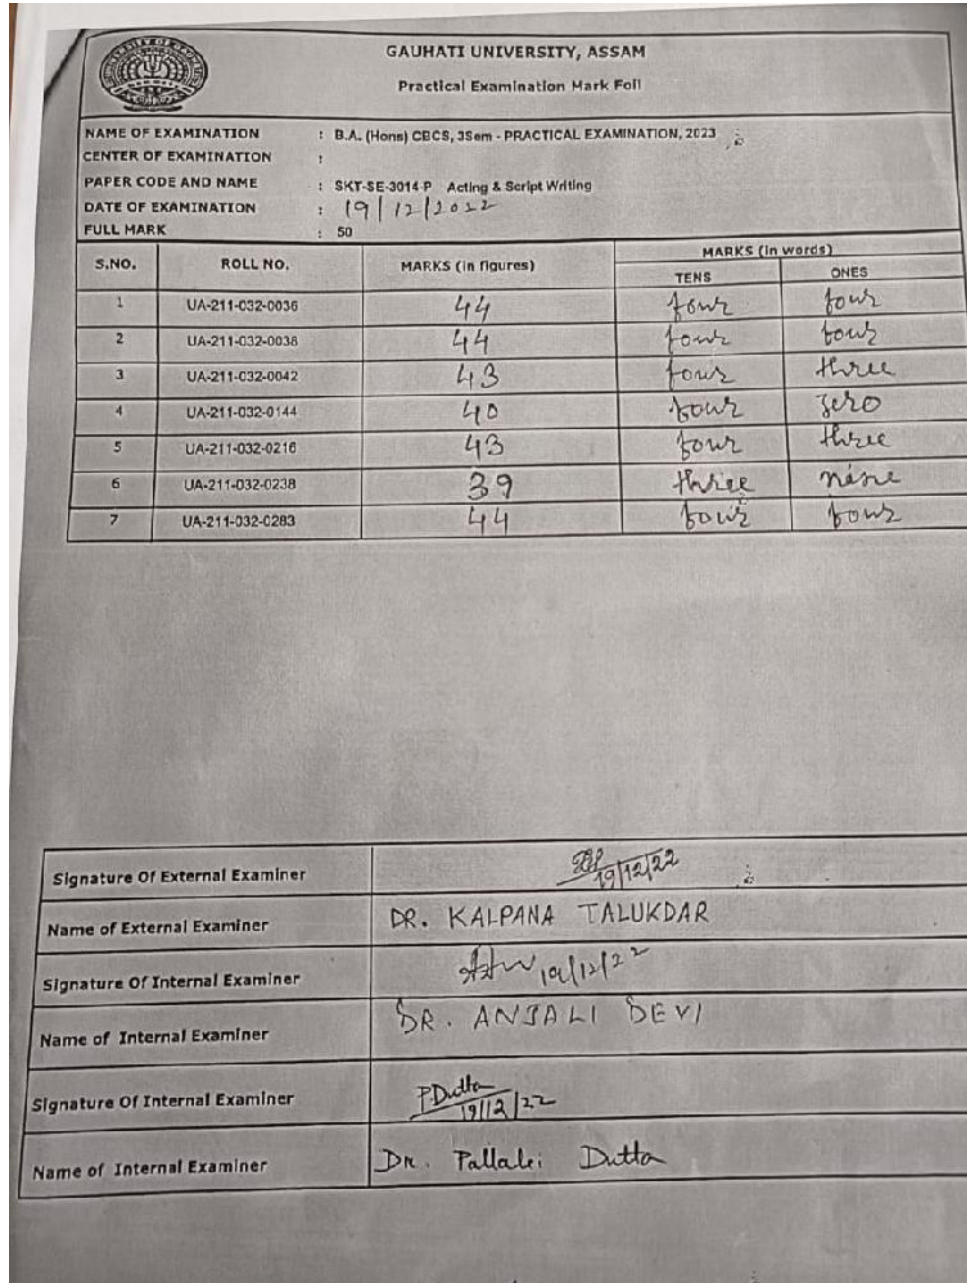 GAUHATI UNIVERSITY, ASSAM
Practical Examination Mark Foil
NAME OF EXAMINATION : B.A. (Hons) CBCS, 3Sem - PRACTICAL EXAMINATION, 2023
CENTER OF EXAMINATION :
PAPER CODE AND NAME : SKT-SE-3014-P Acting & Script Writing
DATE OF EXAMINATION : 19/12/2022
FULL MARK : 50
S.NO. ROLL NO. MARKS (in figures) MARKS (in words)
TENS ONES
1 UA-211-032-0036 44 four four
2 UA-211-032-0038 44 four four
3 UA-211-032-0042 43 four three
4 UA-211-032-0144 40 four zero
5 UA-211-032-0216 43 four three
6 UA-211-032-0238 39 three nine
7 UA-211-032-0283 44 four four
Signature Of External Examiner 19/12/22
Name of External Examiner DR. KALPANA TALUKDAR
Signature Of Internal Examiner 19/12/22
Name of Internal Examiner DR. ANJALI DEVI
Signature Of Internal Examiner PDutta 19/12/22
Name of Internal Examiner Dr. Dutta